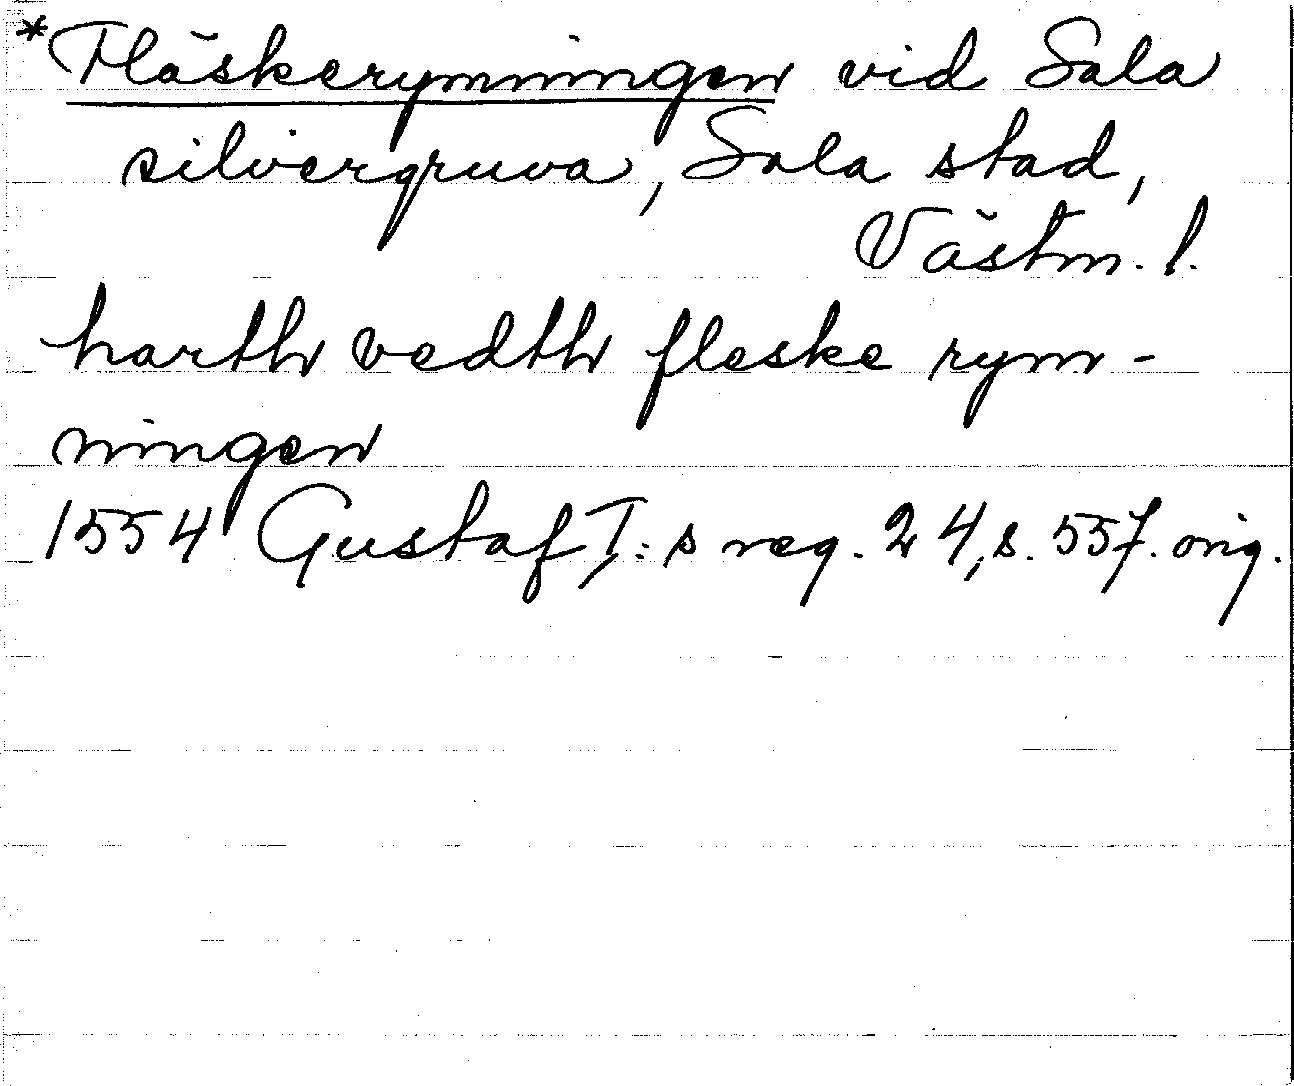 *Fläskerymningen vid Sala
silvergruva, Sala stad,
Västm. l.
harth vedth fleske rym-
ningen
1554 Gustaf I:s reg. 24, s. 557. orig.